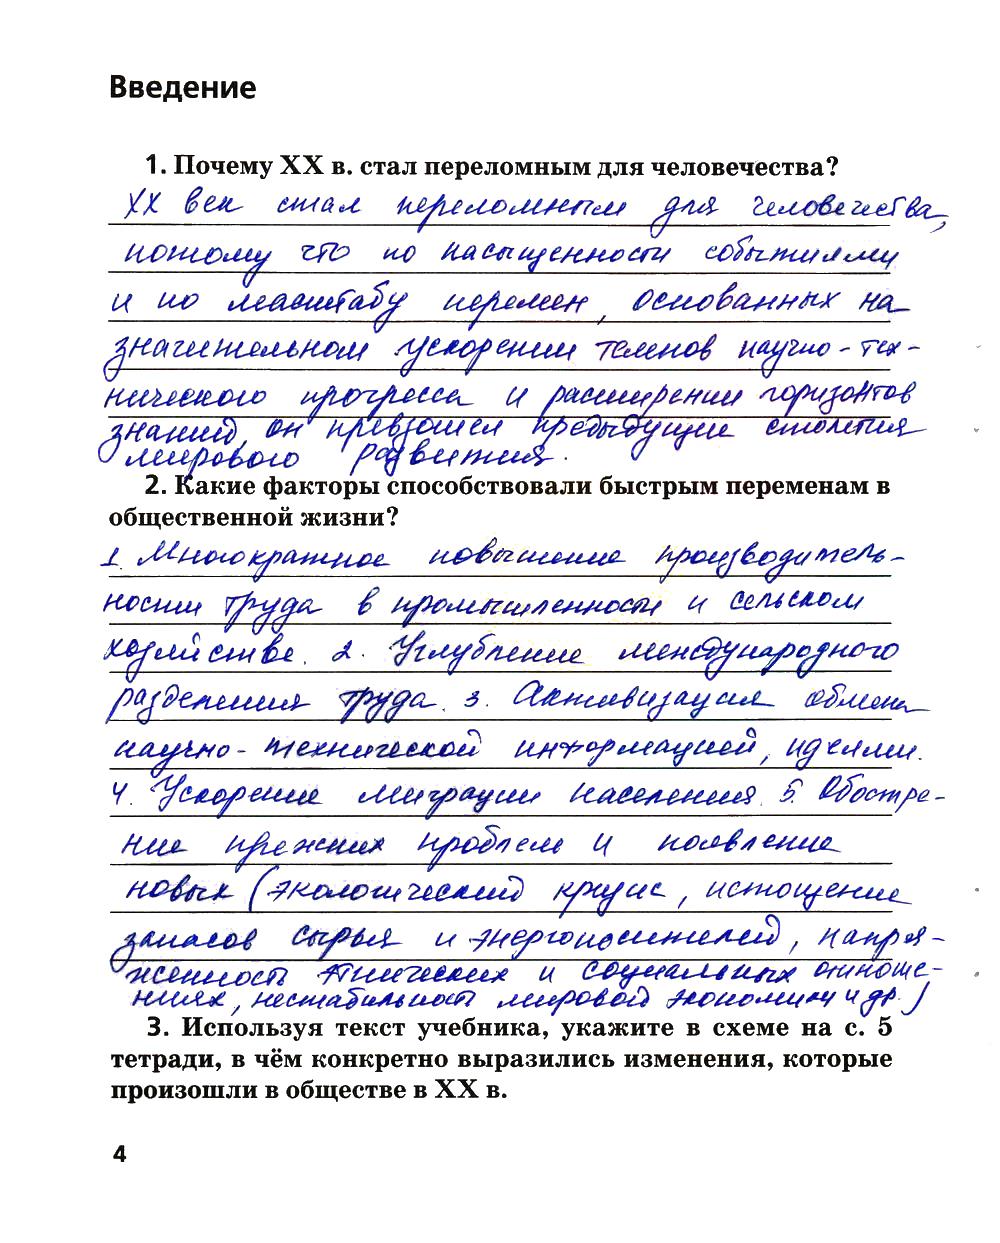 Введение
1. Почему XX в. стал переломным для человечества?
XX век стал переломным для человечества,
потому что по насыщенности событиями
и по масштабу перемен, основанных на
значительном ускорении темпов научно-тех-
нического прогресса и расширении горизонтов
знаний, он превзошел предыдущие столетия
мирового развития.
2. Какие факторы способствовали быстрым переменам в
общественной жизни?
1. Многократное повышение производитель-
ности труда в промышленности и сельском
хозяйстве. 2. Углубление международного
разделения труда. 3. Активизация обмена
научно-технической информацией, идеями.
4. Ускорение миграции населения. 5. Обостре-
ние прежних проблем и появление
новых (экологический кризис, истощение
запасов сырья и энергоносителей, напря-
женность этнических и социальных отноше-
ниях, нестабильность мировой экономики и др.)
3. Используя текст учебника, укажите в схеме на с. 5
тетради, в чём конкретно выразились изменения, которые
произошли в обществе в XX в.
4